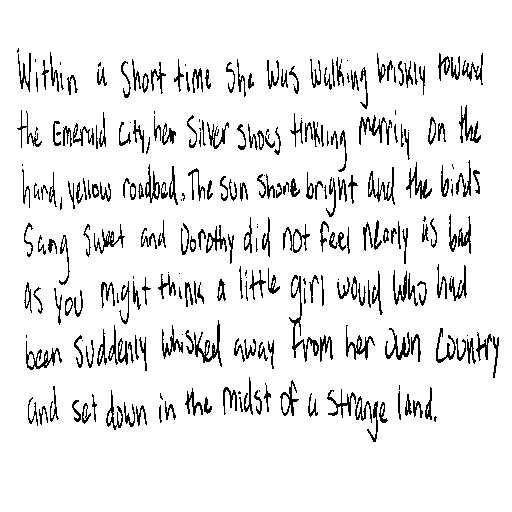 Within a short time she was walking briskly toward
the Emerald City, her Silver Shoes tinkling merrily on the
hard, yellow roadbed. The sun shone bright and the birds
sang sweet and Dorothy did not feel nearly as bad
as you might think a little girl would who had
been suddenly whisked away from her own country
and set down in the midst of a strange land.